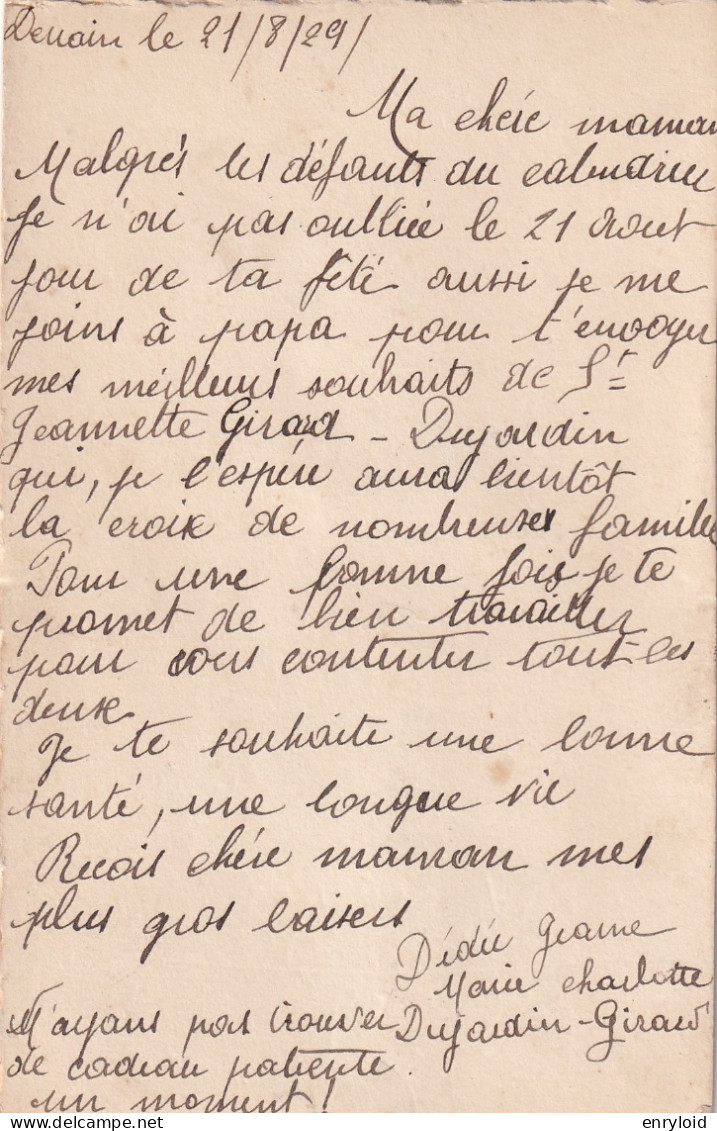 Denain le 21/8/29/
Ma chère maman
Malgrés les défauts du calendrier
je n'ai pas oubliée le 21 Aout
jour de ta fêté aussi je me
joins à papa pour t'envoyer
mes meilleurs souhaits de Ste
Jeannette Girard - Dujardin
qui, je l'espére aura bientôt
la croix de nombreuses famille
Pour une bonne fois je te
promet de bien travailler
pour vous contenter tout les
deux
Je te souhaite une bonne
santé, une longue vie
Recois chére maman mes
plus gros baisers
Dédée Jeanne
Marie Charlotte
Dujardin-Girard
N'ayans pas trouver
de cadeau patiente
un moment!
enryloid